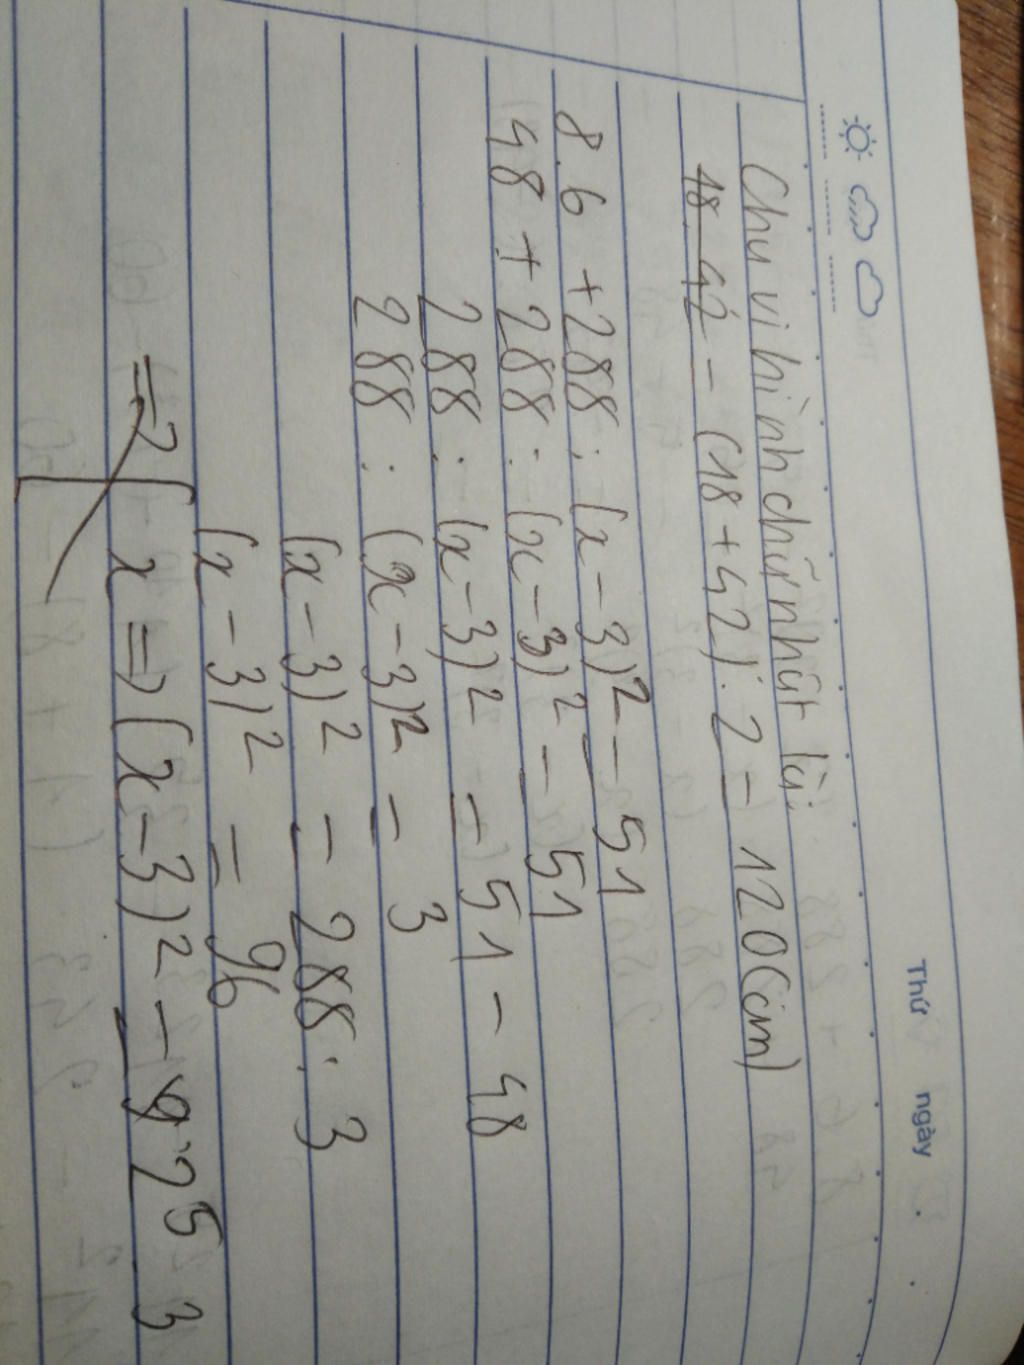 Thứ ngày
Chu vi hình chữ nhật là:
(18 + 42). 2 = 120(cm)
8.6 + 288 : (x - 3)² = 51
48 + 288 : (x - 3)² = 51
288 : (x - 3)² = 51 - 48
288 : (x - 3)² = 3
(x - 3)² = 288 : 3
(x - 3)² = 96
x => (x - 3)² = 9